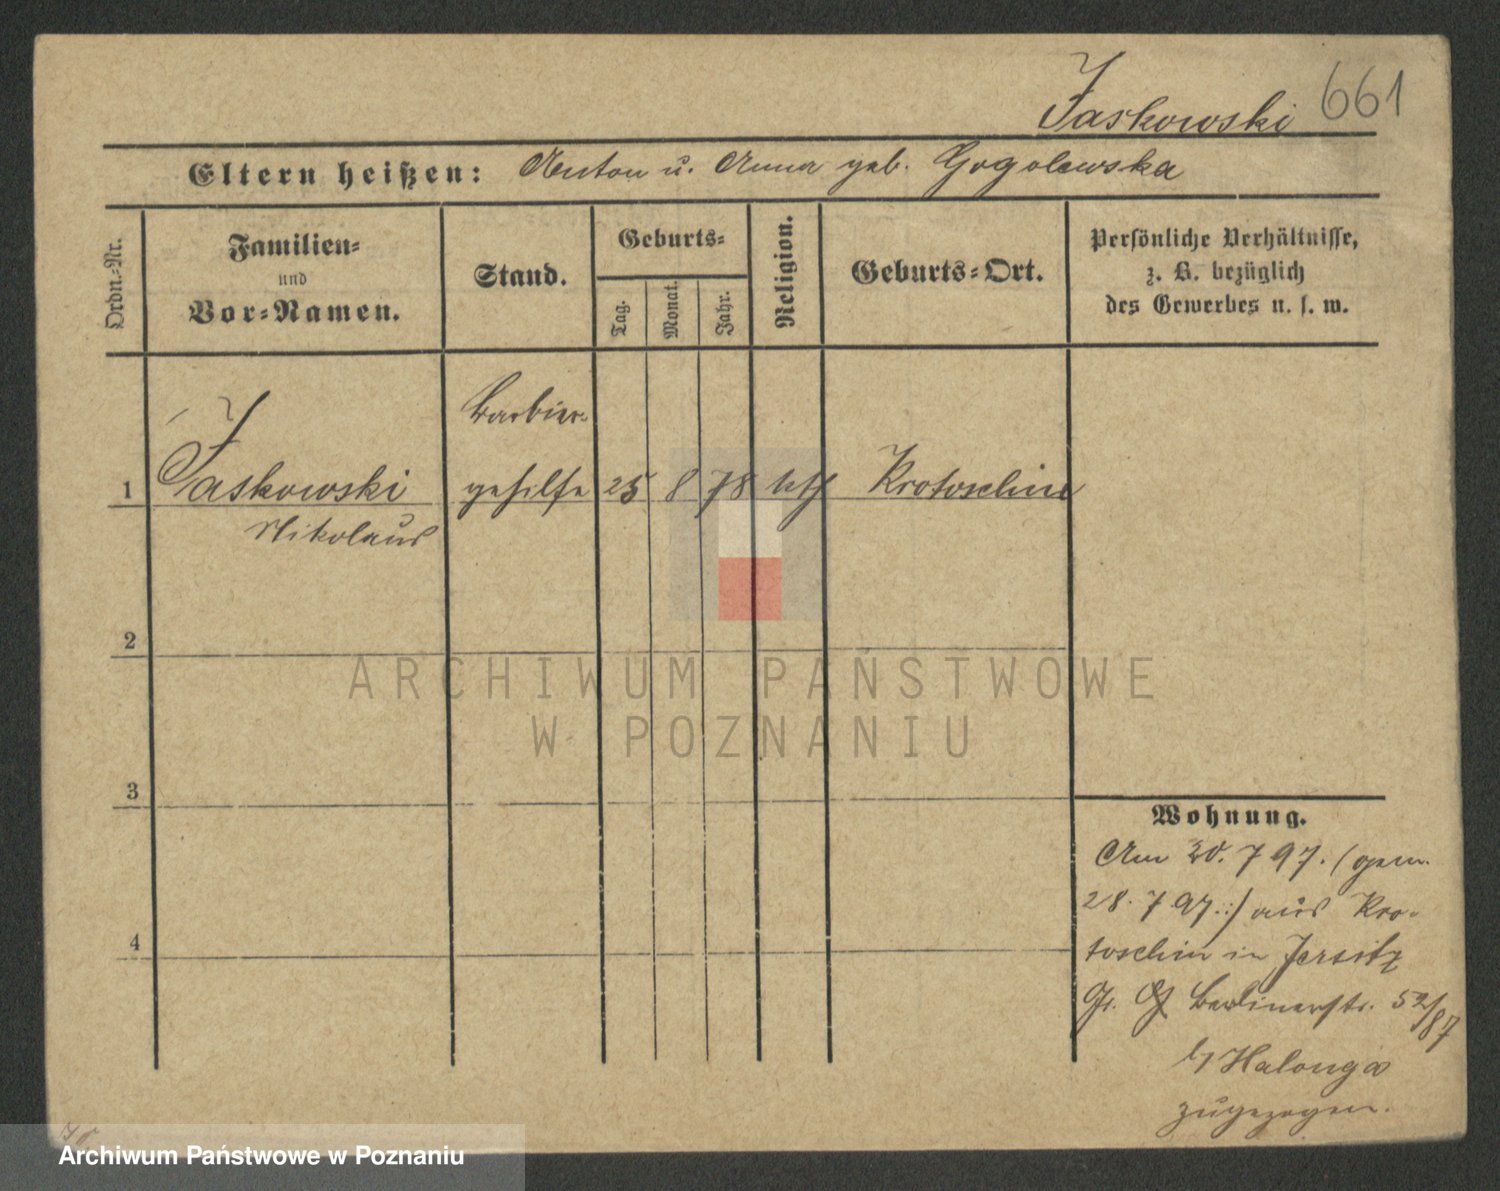 Jaskowski 661
Eltern heißen: Anton u. Anna geb. Gogolewska
Ordn.-Nr.
Familien-
und
Vor-Namen.
Stand.
Geburts-
Tag.
Monat.
Jahr.
Religion.
Geburts-Ort.
Persönliche Verhältnisse,
z. B. bezüglich
des Gewerbes u. s. w.
Barbier-
1 Jaskowski gehilfe 25 8 78 kth Krotoschin
Nikolaus
2
3
4
ARCHIWUM PAŃSTWOWE
W POZNANIU
Wohnung.
Am 20. 7 97. (gem.
28. 7 97.:) aus Kro-
toschin in Jersitz
Gr. Berlinerstr. 52/87
b/ Halonga
zugezogen.
Archiwum Państwowe w Poznaniu